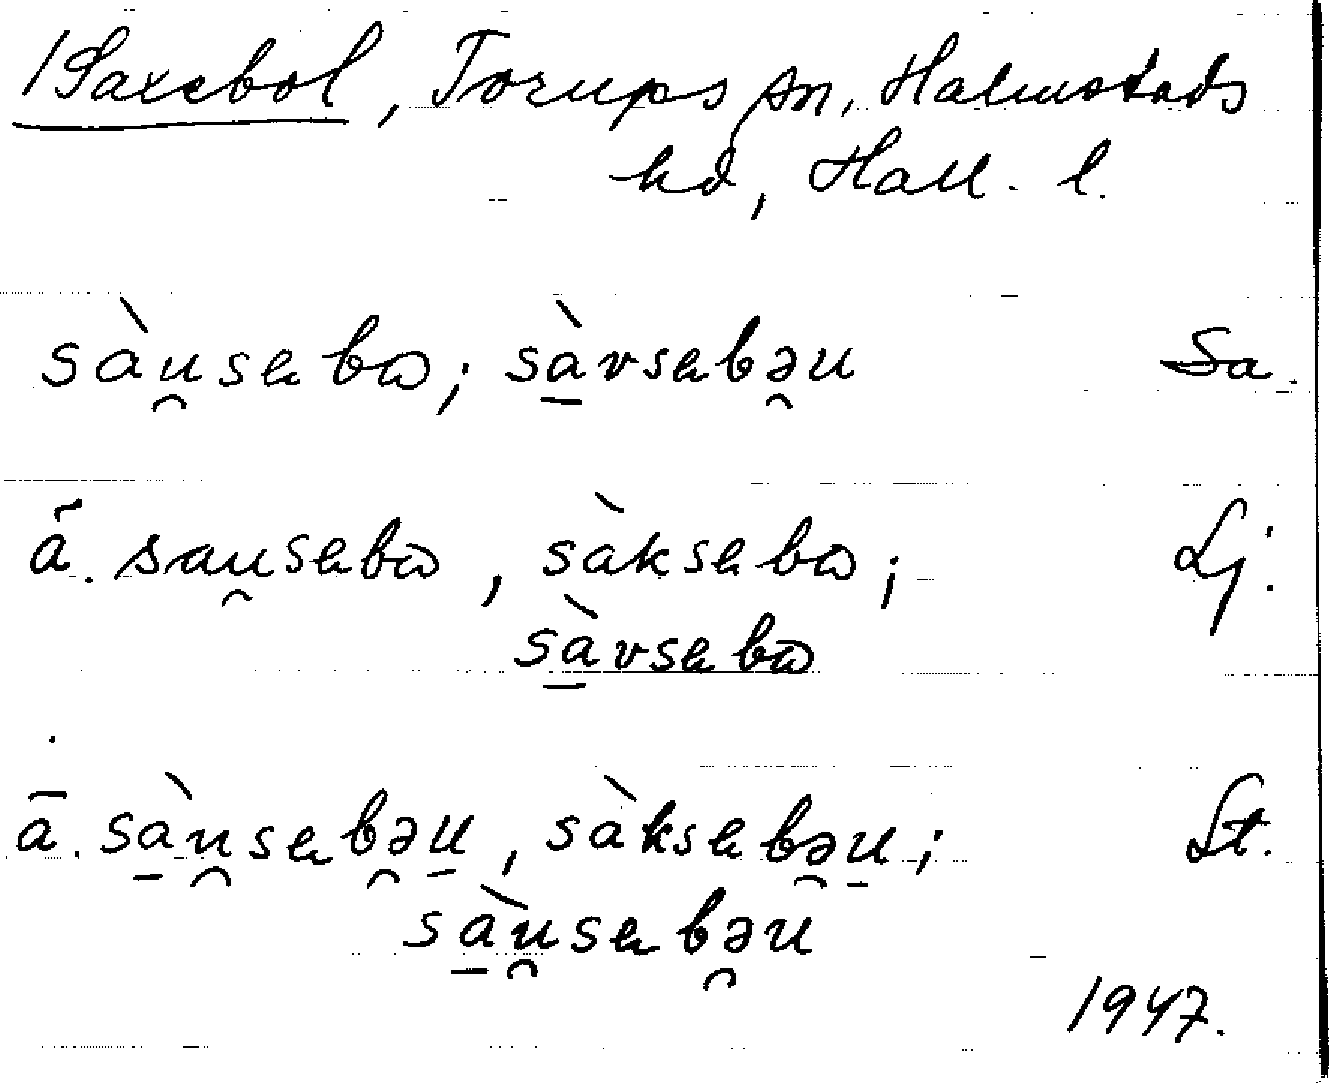 /Saxebol, Torups sn, Halmstads
hd, Hall. l.
sàu̯sebω; sà̱vsebə̯u Sa.
ā. sau̯sebω, sàksebω; Lj.
sà̱vsebω
ā. sà̱u̯seb̯əu̱, sàksebə̯u̱; St.
sà̱u̯seb̯əu
1947.